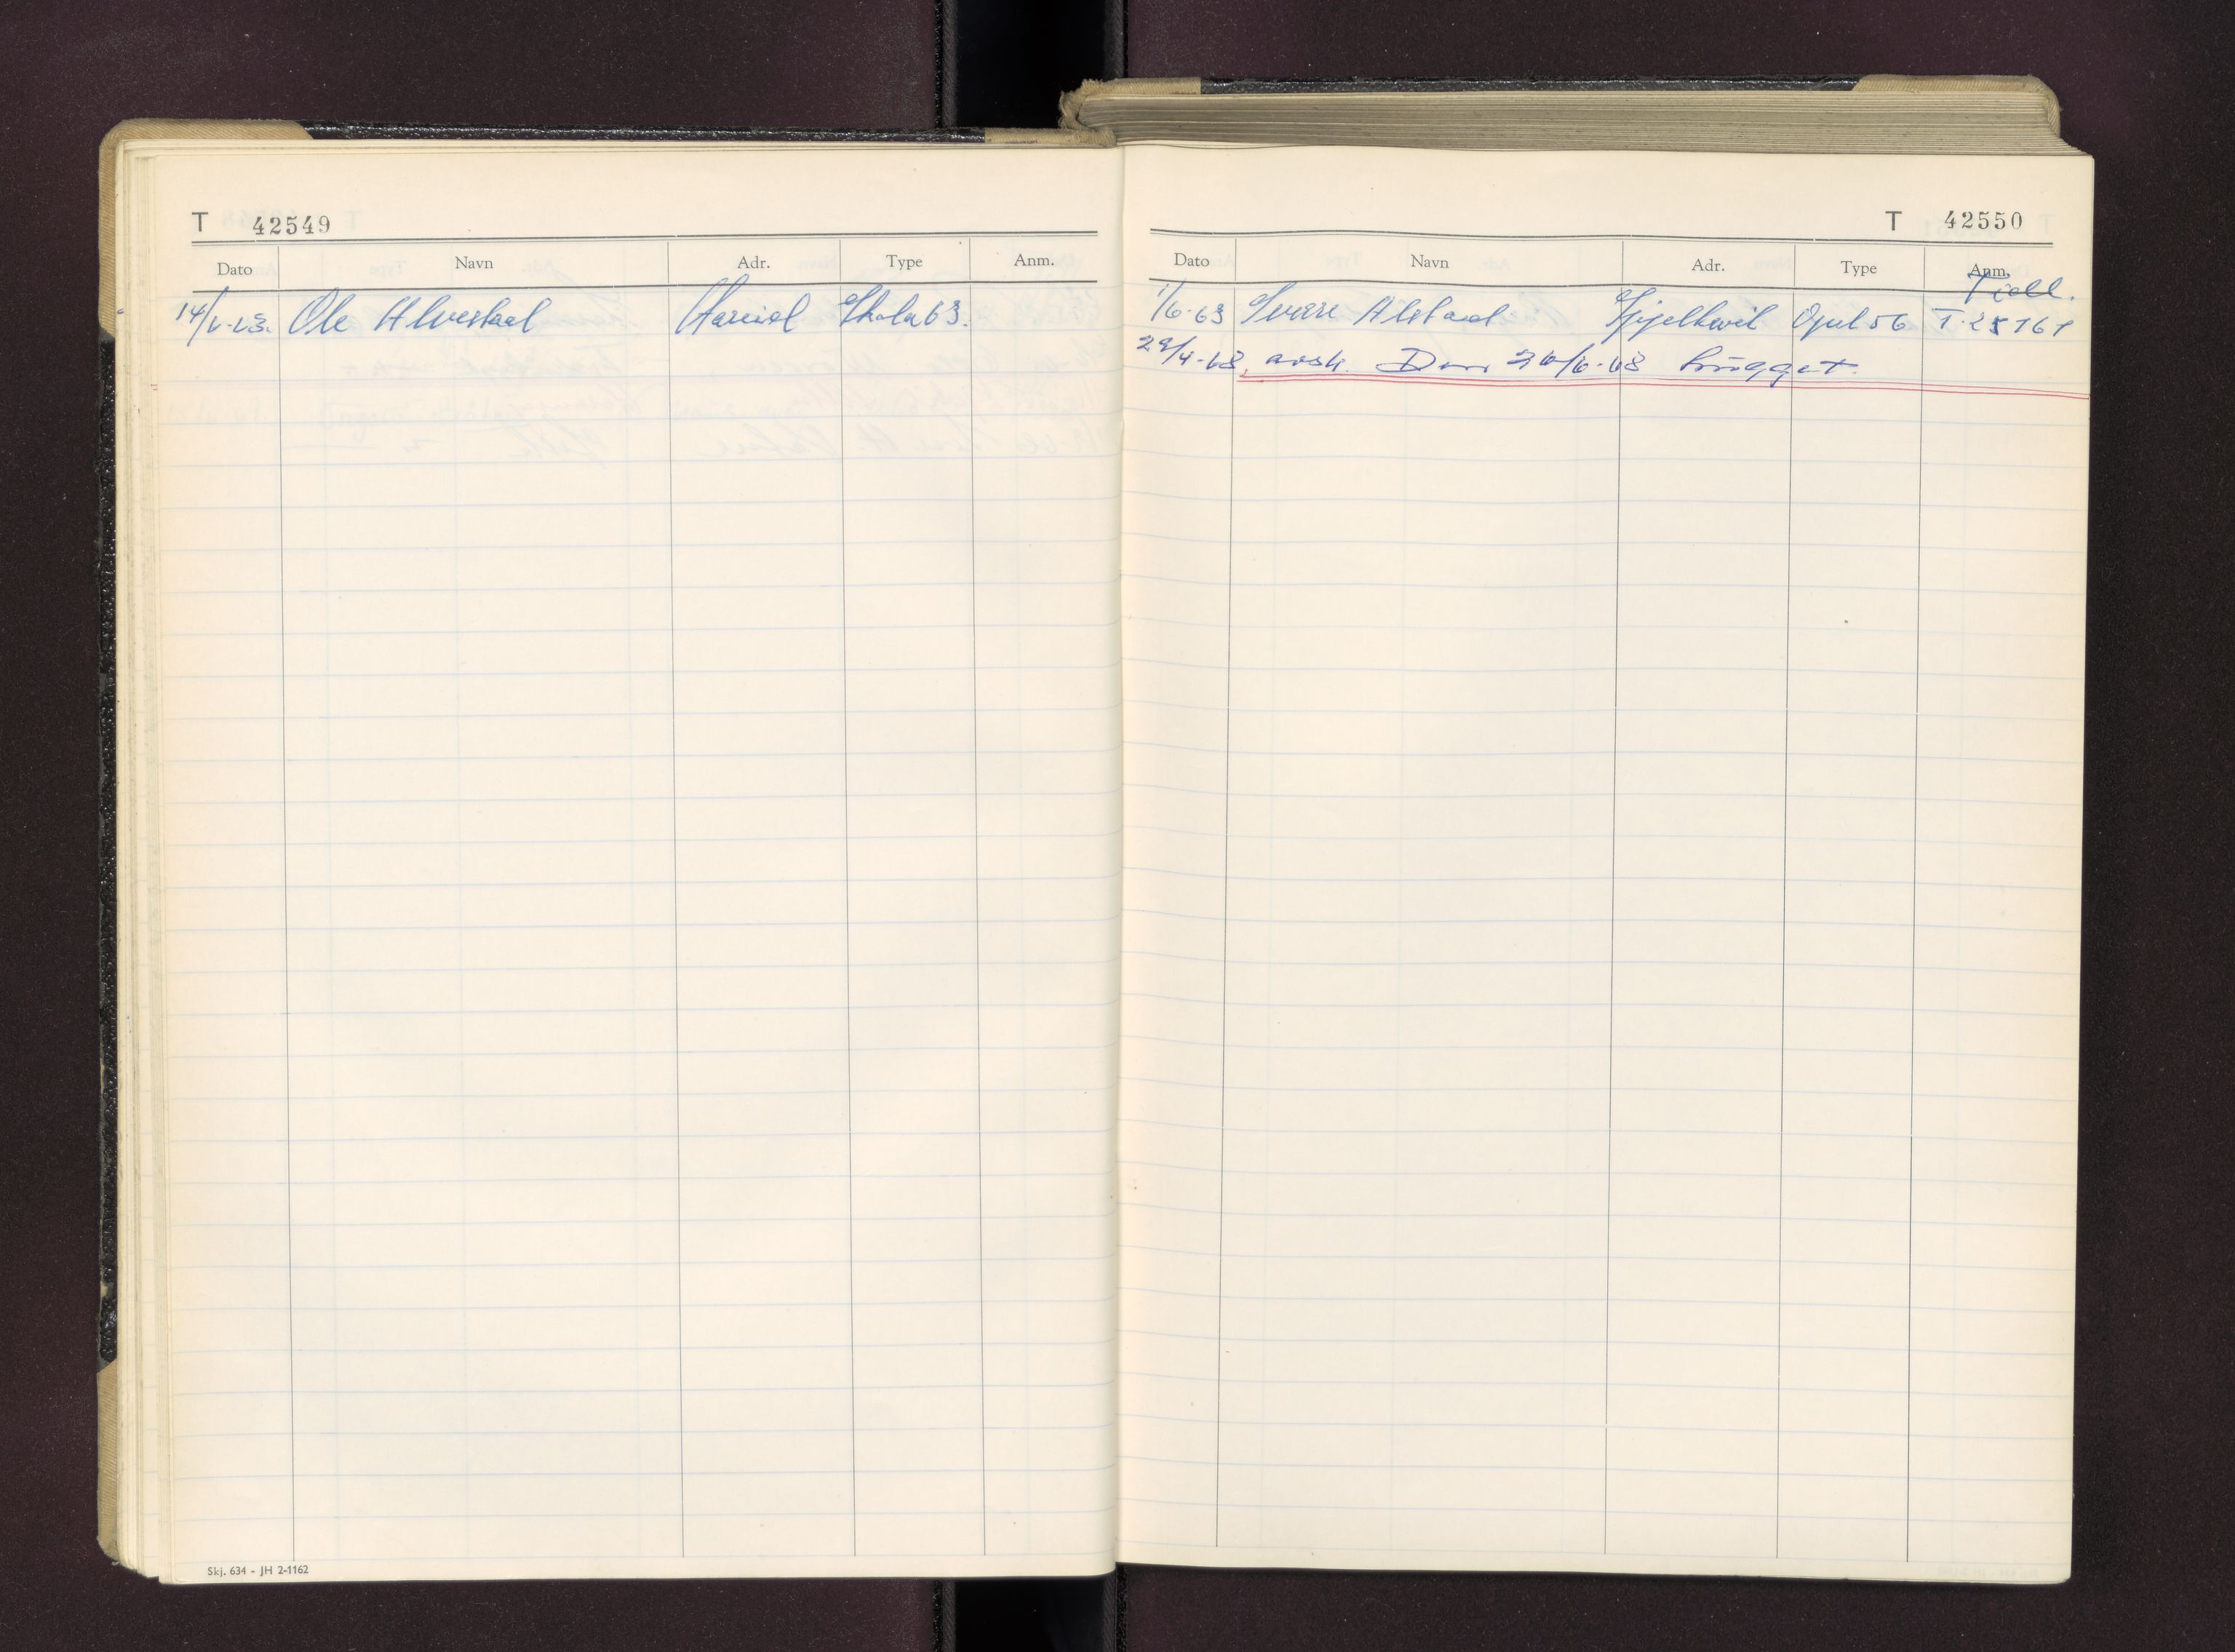 T 42549
Dato Navn Adr. Type Anm.
14/6-63. Ole Alvestad Hareid Skoda 63.
Skj. 634 - JH 2-1162
T 42550
Dato Navn Adr. Type Anm.
Tidl.
1/6-63 Sverre Alstad Spjelkavik Opel 56 T-25767
avsk. Den 26/6-68 hugget.